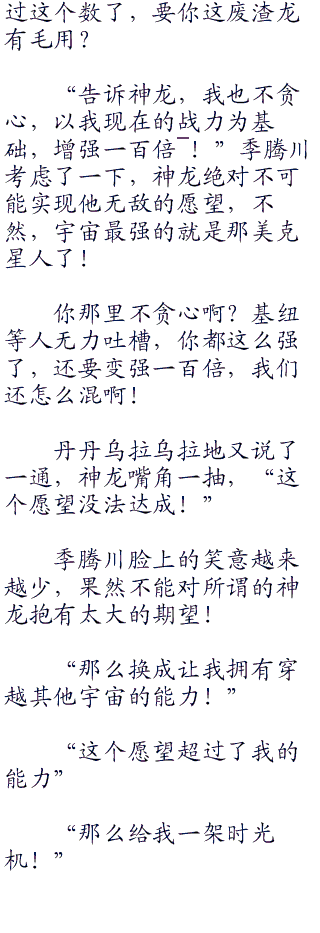 过这个数了，要你这废渣龙
有毛用？
“告诉神龙，我也不贪
心，以我现在的战力为基
础，增强一百倍¯！”季腾川
考虑了一下，神龙绝对不可
能实现他无敌的愿望，不
然，宇宙最强的就是那美克
星人了！
你那里不贪心啊？基纽
等人无力吐槽，你都这么强
了，还要变强一百倍，我们
还怎么混啊！
丹丹乌拉乌拉地又说了
一通，神龙嘴角一抽，“这
个愿望没法达成！”
季腾川脸上的笑意越来
越少，果然不能对所谓的神
龙抱有太大的期望！
“那么换成让我拥有穿
越其他宇宙的能力！”
“这个愿望超过了我的
能力”
“那么给我一架时光
机！”